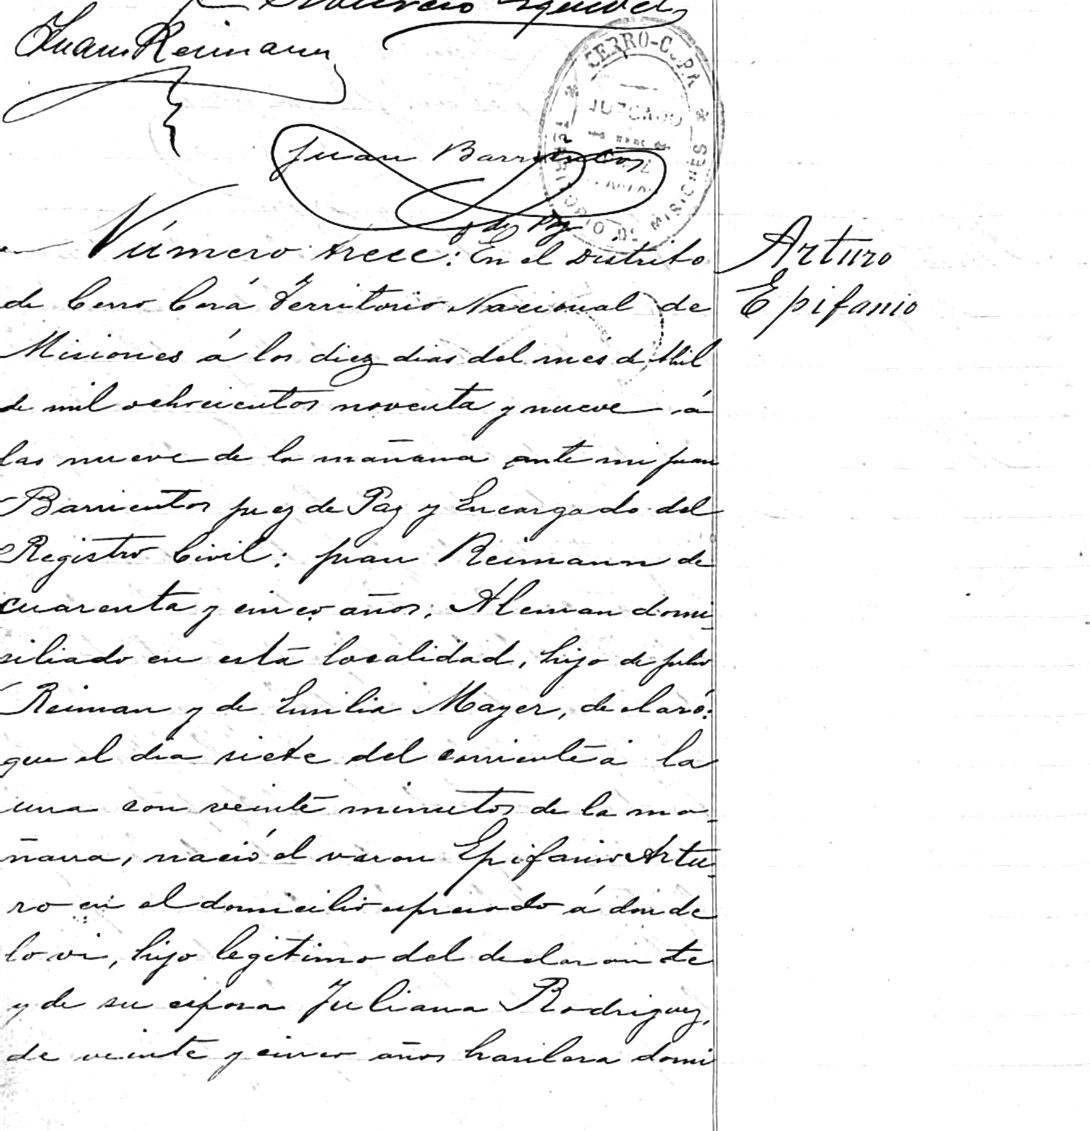 Juan Reimann
CERRO-CORÁ
JUZGADO
DE MISIONES
Juan Barrientos
Juez de Paz
Número trece: En el Distrito
de Cerro Corá Territorio Nacional de
Misiones á los diez dias del mes de Abril
de mil ochocientos noventa y nueve á
las nueve de la mañana ante mi Juan
Barrientos Juez de Paz y Encargado del
Registro Civil; Juan Reimann de
cuarenta y cinco años, Aleman domi-
siliado en está localidad, hijo de Julio
Reiman y de Emilia Mayer, declaró:
que el dia siete del corriente á la
una con veinte minutos de la ma-
ñana, nació el varon Epifanio Artu-
ro en el domicilio espresado á donde
lo vi, hijo legitimo del declarante
y de su esposa Juliana Rodriguez,
de veinte y cinco años brasilera domi
Arturo
Epifanio